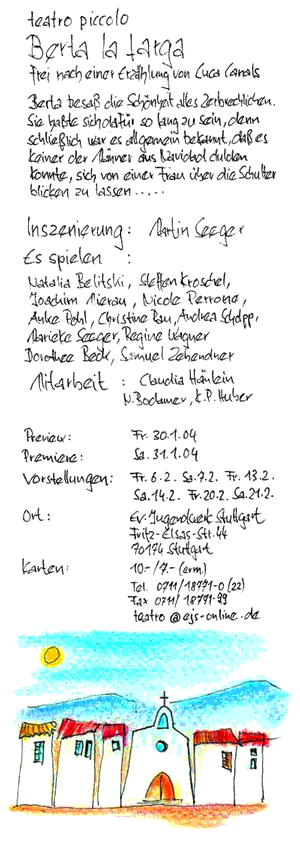 teatro piccolo
Berta la larga
frei nach einer Erzählung von Luca Canals
Berta besaß die Schönheit alles Zerbrechlichen.
Sie haßte sich dafür so lang zu sein, denn
schließlich war es allgemein bekannt, daß es
keiner der Männer aus Navidad dulden
konnte, sich von einer Frau über die Schulter
blicken zu lassen.....
Inszenierung: Martin Seeger
Es spielen :
Natalia Belitski, Steffen Kroschel,
Joachim Mierau, Nicole Perrone,
Anke Pohl, Christine Rau, Andrea Schöpp,
Marieke Seeger, Regine Wagner
Dorothee Beck, Samuel Zehendner
Mitarbeit : Claudia Hänlein
N. Bochumer, K.P. Huber
Preview: Fr. 30.1.04
Premiere: Sa. 31.1.04
Vorstellungen: Fr. 6.2. Sa. 7.2. Fr. 13.2.
Sa. 14.2. Fr. 20.2. Sa. 21.2.
Ort: Ev. Jugendwerk Stuttgart
Fritz-Elsas-Str. 44
70174 Stuttgart
Karten: 10.-/7.- (erm.)
Tel. 0711/18771-0 (22)
Fax 0711/18771-99
teatro@ejs-online.de